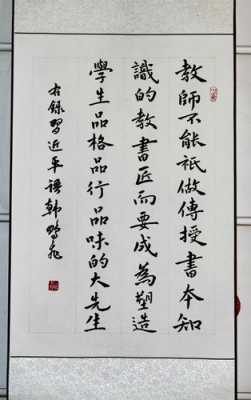 教師不能衹做傳授書本知
識的教書匠而要成為塑造
學生品格品行品味的大先生
右錄習近平語韓鵬飛